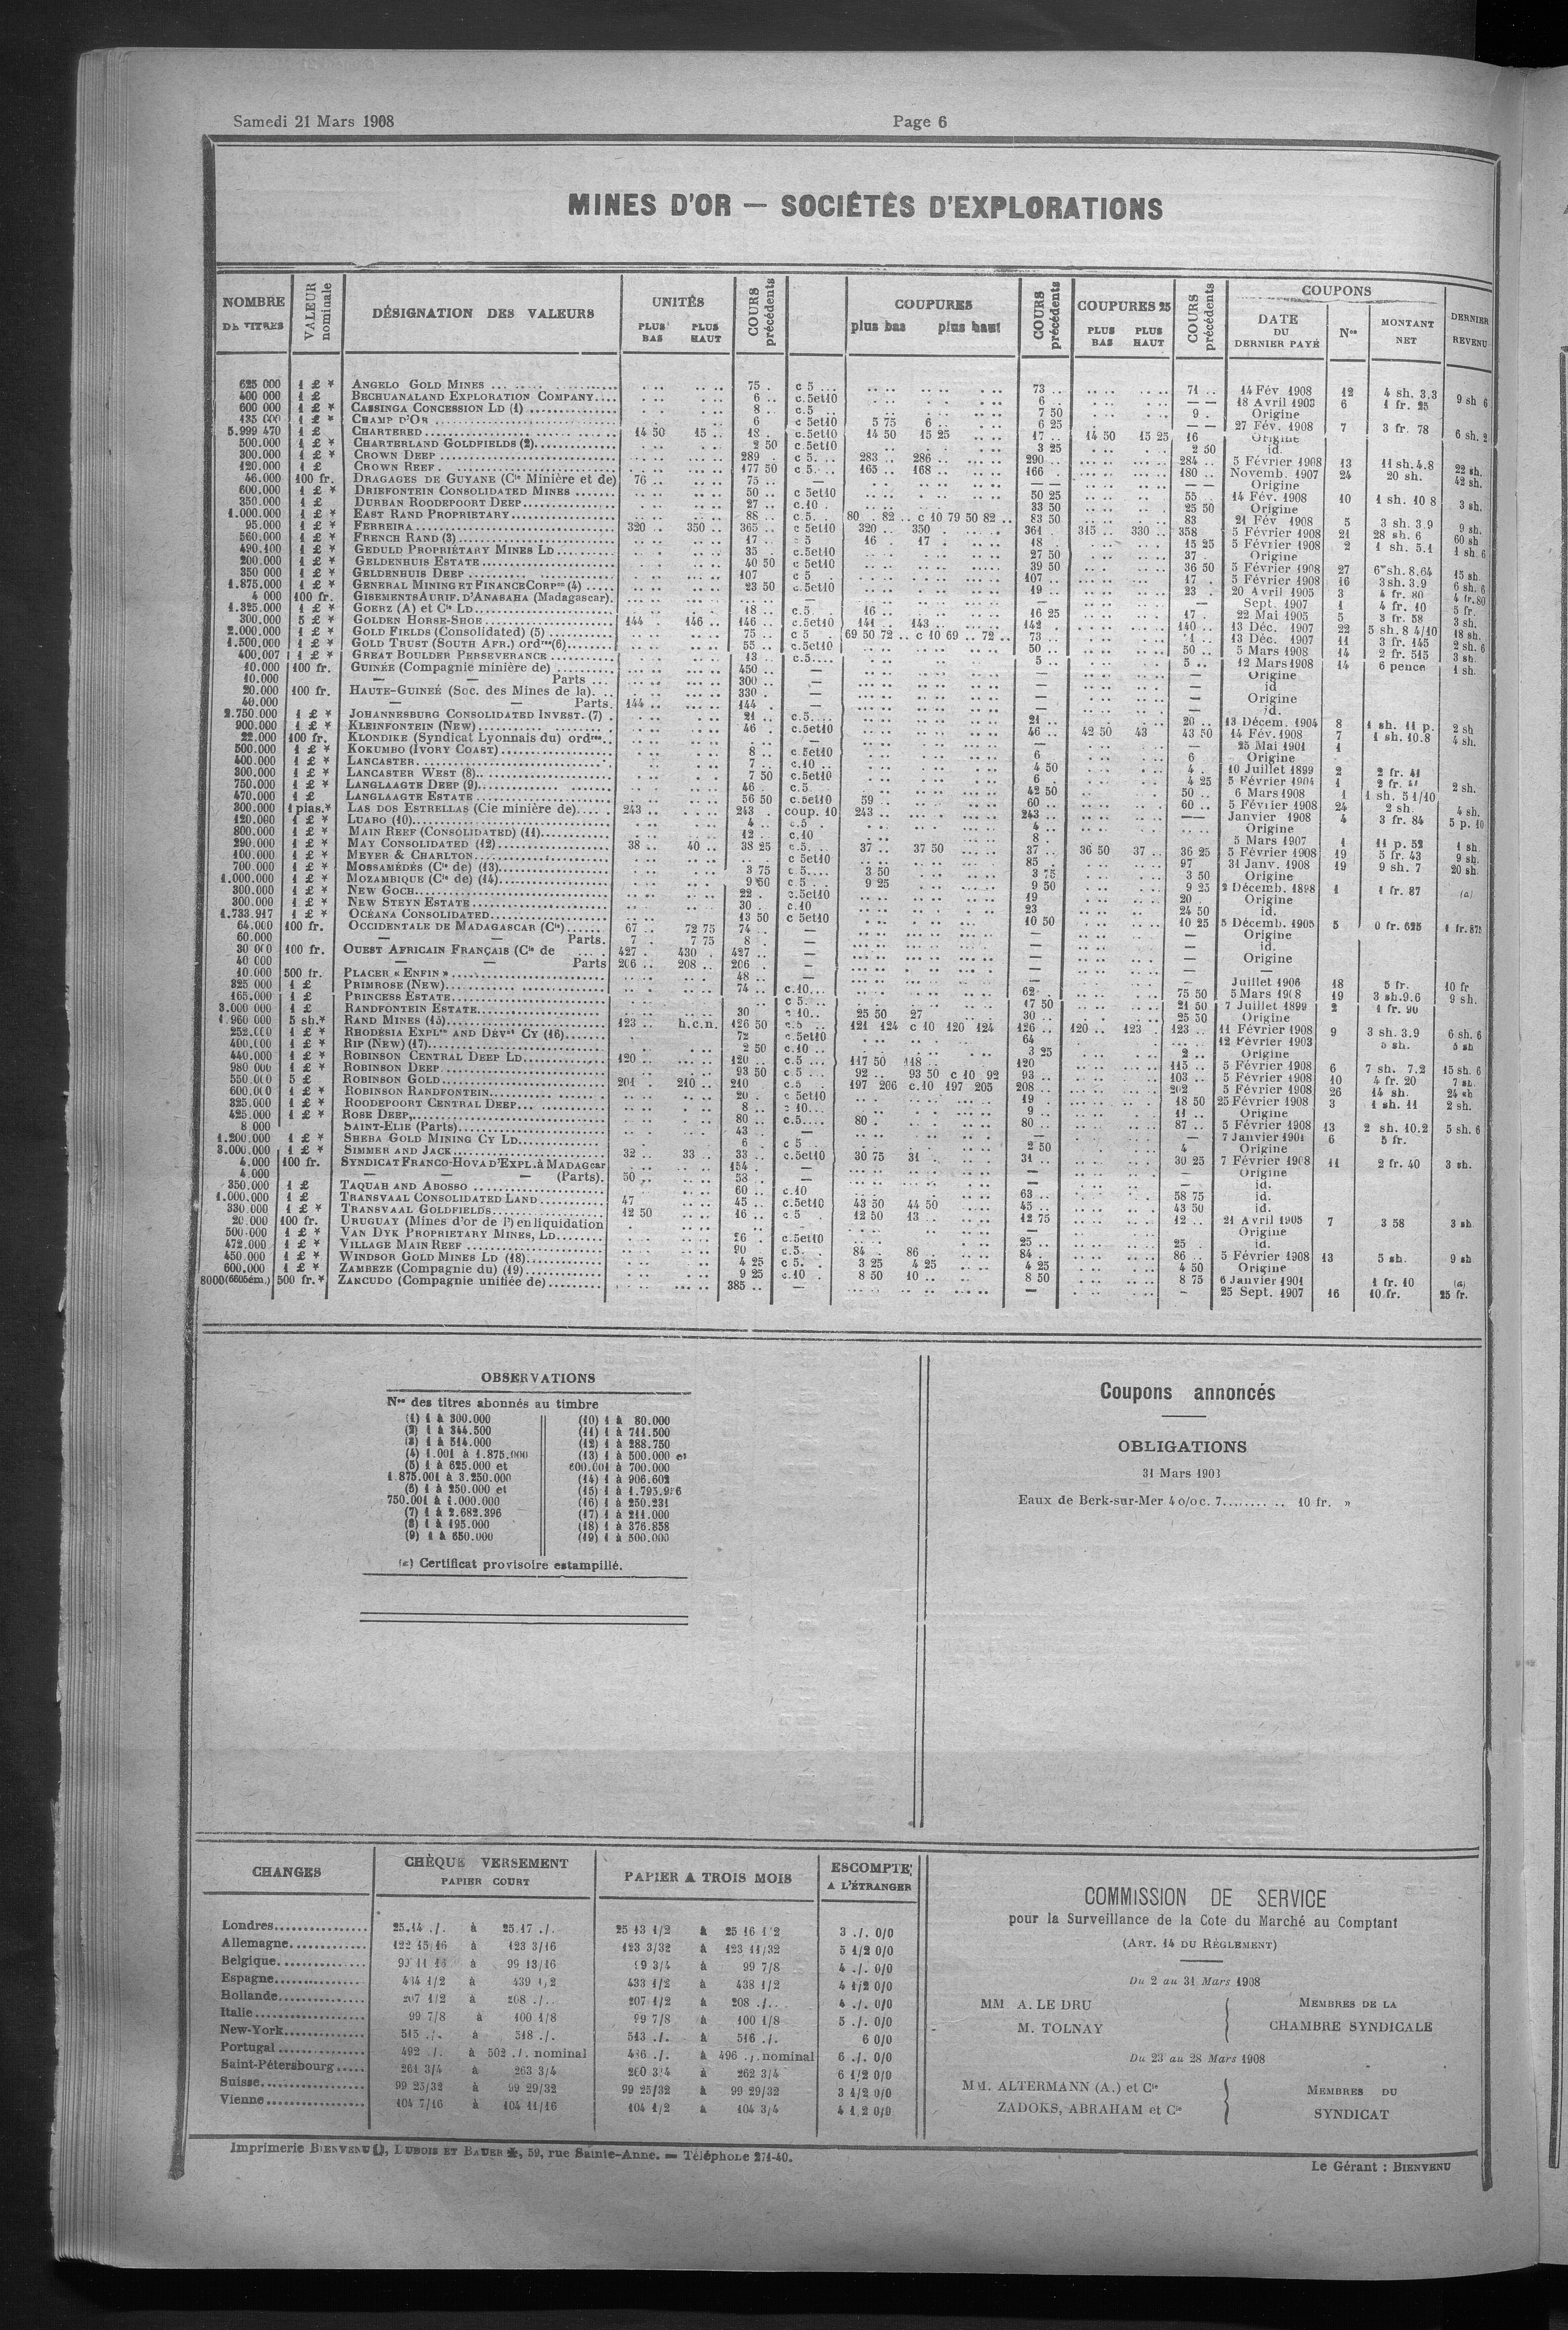 Samedi 21 Mars 1908
Page 6
MINES D'OR — SOCIÉTÉS D'EXPLORATIONS
NOMBRE DE TITRES
VALEUR nominale
DÉSIGNATION DES VALEURS
UNITÉS
PLUS BAS PLUS HAUT
COURS précédents
COUPURES
plus bas plus haut
COURS précédents
COUPURES 25
PLUS BAS PLUS HAUT
COURS précédents
COUPONS
DATE DU DERNIER PAYÉ
Nos
MONTANT NET
DERNIER REVENU
625 000 1 £ * ANGELO GOLD MINES 75 c 5 73 71 14 Fév 1908 12 4 sh. 3.3 9 sh 6
400 000 1 £ BECHUANALAND EXPLORATION COMPANY 6 c.5et10 6 — — 18 Avril 1903 6 1 fr. 25
600 000 1 £ * CASSINGA CONCESSION LD (1) 8 c.5 7 50 9 Origine
135 000 1 £ * CHAMP D'OR 6 c 5et10 5 75 6 6 25 — — 27 Fév. 1908 7 3 fr. 78 6 sh. 2
5.999 470 1 £ CHARTERED 14 50 15 18 c.5et10 14 50 15 25 17 14 50 15 25 16 Origine
500.000 1 £ * CHARTERLAND GOLDFIELDS (2) 2 50 c.5et10 3 25 2 50 id.
300.000 1 £ * CROWN DEEP 289 c 5. 283 286 290 284 5 Février 1908 13 11 sh. 4.8 22 sh.
120.000 1 £ CROWN REEF 177 50 c 5. 165 168 166 180 Novemb. 1907 24 20 sh. 42 sh.
46.000 100 fr. DRAGAGES DE GUYANE (Cie Minière et de) 76 75 — — — — Origine
600.000 1 £ * DRIEFONTEIN CONSOLIDATED MINES 50 c 5et10 50 25 55 14 Fév. 1908 10 1 sh. 10 8 3 sh.
350.000 1 £ DURBAN ROODEPOORT DEEP 27 c.10 33 50 25 50 Origine
1.000.000 1 £ * EAST RAND PROPRIETARY 88 c.5. 80 82 c 10 79 50 82 83 50 83 21 Fév 1908 5 3 sh. 3.9 9 sh.
95.000 1 £ * FERREIRA 320 350 365 c 5et10 320 350 361 315 330 358 5 Février 1908 21 28 sh. 6 60 sh
560.000 1 £ * FRENCH RAND (3) 17 c 5 16 17 18 15 25 5 Février 1908 2 1 sh. 5.1 1 sh. 6
490.100 1 £ * GEDULD PROPRIÉTARY MINES LD 35 c.5et10 27 50 37 Origine
200.000 1 £ * GELDENHUIS ESTATE 40 50 c 5et10 39 50 36 50 5 Février 1908 27 6 sh. 8.64 15 sh.
350 000 1 £ * GELDENHUIS DEEP 107 c 5 107 17 5 Février 1908 16 3 sh. 3.9 6 sh. 6
1.875.000 1 £ * GENERAL MINING ET FINANCE CORPon (4) 23 50 c.5et10 19 23 20 Avril 1905 3 4 fr. 80 4 fr. 80
4 000 100 fr. GISEMENTS AURIF. D'ANASAHA (Madagascar). — — Sept. 1907 1 4 fr. 10 5 fr.
1.325.000 1 £ * GOERZ (A) et Cie LD 18 c.5 16 16 25 17 22 Mai 1905 5 3 fr. 58 3 sh.
300.000 5 £ * GOLDEN HORSE-SHOE 144 146 146 c.5et10 141 143 142 140 13 Déc. 1907 22 5 sh. 8 4/10 18 sh.
2.000.000 1 £ * GOLD FIELDS (Consolidated) (5) 75 c 5 69 50 72 c 10 69 72 73 13 Déc. 1907 11 3 fr. 145 2 sh. 6
1.500.000 1 £ * GOLD TRUST (SOUTH AFR.) ordres (6) 55 c.5et10 50 50 5 Mars 1908 14 2 fr. 515 3 sh.
400,007 1 £ * GREAT BOULDER PERSEVERANCE 13 c.5 5 5 12 Mars 1908 14 6 pence 1 sh.
10.000 100 fr. GUINÉE (Compagnie minière de) 450 — — — Origine
10.000 — — Parts 300 — — — id
20.000 100 fr. HAUTE-GUINÉE (Soc. des Mines de la). 330 — — — Origine
40.000 — — Parts. 144 144 — — — id.
2.750.000 1 £ * JOHANNESBURG CONSOLIDATED INVEST. (7) 21 c.5 21 20 13 Décem. 1904 8 1 sh. 11 p. 2 sh
900.000 1 £ * KLEINFONTEIN (NEW) 46 c.5et10 46 42 50 43 43 50 14 Fév. 1908 7 1 sh. 10.8 4 sh.
22.000 100 fr. KLONDIKE (Syndicat Lyonnais du) ordres — — — 25 Mai 1901 1
500.000 1 £ * KOKUMBO (IVORY COAST) 8 c 5et10 6 6 Origine
400.000 1 £ * LANCASTER 7 c.10 4 50 4 10 Juillet 1899 2 2 fr. 41
300.000 1 £ * LANCASTER WEST (8) 7 50 c.5et10 6 4 25 5 Février 1904 1 2 fr. 2 sh.
750.000 1 £ * LANGLAAGTE DEEP (9) 46 c.5 42 50 50 6 Mars 1908 1 1 sh. 5 1/10
470.000 1 £ LANGLAAGTE ESTATE 56 50 c.5et10 59 60 60 5 Février 1908 24 2 sh. 4 sh.
300.000 1 pias.* LAS DOS ESTRELLAS (Cie minière de) 243 243 coup. 10 243 243 — Janvier 1908 4 3 fr. 84 5 p. 10
120.000 1 £ * LUABO (10) 4 c.5 4 Origine
800.000 1 £ * MAIN REEF (CONSOLIDATED) (11) 12 c.10 8 5 Mars 1907 1 11 p. 52 1 sh.
290.000 1 £ * MAY CONSOLIDATED (12) 38 40 38 25 c.5. 37 37 50 37 36 50 37 36 25 5 Février 1908 19 5 fr. 43 9 sh.
100.000 1 £ * MEYER & CHARLTON c 5et10 85 97 31 Janv. 1908 19 9 sh. 7 20 sh.
700.000 1 £ * MOSSAMÉDÈS (Cie de) (13) 3 75 c.5 3 50 3 75 3 50 Origine
1.000.000 1 £ * MOZAMBIQUE (Cie de) (14) 9 50 c 5 9 25 9 50 9 25 2 Décemb. 1898 1 1 fr. 87 (a)
300.000 1 £ * NEW GOCH 22 c.5et10 19 20 Origine
300.000 1 £ * NEW STEYN ESTATE 30 c.10 23 24 50 id.
1.733.917 1 £ * OCÉANA CONSOLIDATED 13 50 c 5et10 10 50 10 25 5 Décemb. 1905 5 0 fr. 625 1 fr. 875
64.000 100 fr. OCCIDENTALE DE MADAGASCAR (Cie) 67 72 75 74 — — — Origine
60.000 — — Parts. 7 7 75 8 — — — id.
30 000 100 fr. OUEST AFRICAIN FRANÇAIS (Cie de 427 430 427 — — — Origine
40 000 — — Parts 206 208 206 — — — —
10.000 500 fr. PLACER « ENFIN » 48 — Juillet 1906 18 5 fr. 10 fr
325 000 1 £ PRIMROSE (NEW) 74 c.10 62 75 50 5 Mars 1908 19 3 sh. 9.6 9 sh.
165.000 1 £ PRINCESS ESTATE c 5 17 50 21 50 7 Juillet 1899 2 1 fr. 90
3.000 000 1 £ RANDFONTEIN ESTATE 30 c 10 25 50 27 30 25 50 Origine
1.960 000 5 sh.* RAND MINES (15) 123 h.c.n. 126 50 c.5 121 124 c 10 120 124 126 120 123 123 11 Février 1908 9 3 sh. 3.9 6 sh. 6
252.000 1 £ * RHODÉSIA EXPLon AND DEVent CY (16) 72 c.5et10 64 12 Février 1903 5 sh. 5 sh
400.000 1 £ * RIP (NEW) (17) 2 50 c.10 3 25 2 Origine
440.000 1 £ * ROBINSON CENTRAL DEEP LD 120 120 c.5 117 50 118 120 115 5 Février 1908 6 7 sh. 7.2 15 sh. 6
980 000 1 £ * ROBINSON DEEP 93 50 c 5 92 93 50 c 10 92 93 103 5 Février 1908 10 4 fr. 20 7 sh.
550.000 5 £ ROBINSON GOLD 201 210 210 c.5 197 206 c.10 197 205 208 202 5 Février 1908 26 14 sh. 24 sh
600.000 1 £ * ROBINSON RANDFONTEIN 20 c 5et10 19 18 50 25 Février 1908 3 1 sh. 11 2 sh.
325.000 1 £ * ROODEPOORT CENTRAL DEEP 8 c 10 9 11 Origine
425.000 1 £ * ROSE DEEP 80 c.5 80 80 87 5 Février 1908 13 2 sh. 10.2 5 sh. 6
8 000 SAINT-ELIE (Parts) 43 — — — 7 Janvier 1901 6 5 fr.
1.200.000 1 £ * SHEBA GOLD MINING CY LD 6 c 5 2 50 4 Origine
3.000.000 1 £ * SIMMER AND JACK 32 33 33 c.5et10 30 75 31 31 30 25 7 Février 1908 11 2 fr. 40 3 sh.
4.000 100 fr. SYNDICAT FRANCO-HOVA D'EXPL. à MADAGcar 154 — — — Origine
4.000 — — — (Parts). 50 53 — — — id.
350.000 1 £ TAQUAH AND ABOSSO 60 c.10 63 58 75 id.
1.000.000 1 £ TRANSVAAL CONSOLIDATED LAND 47 45 c.5et10 43 50 44 50 45 43 50 id.
330.000 1 £ * TRANSVAAL GOLDFIELDS 12 50 16 c.5 12 50 13 12 75 12 21 Avril 1905 7 3 58 3 sh
20.000 100 fr. URUGUAY (Mines d'or de l') en liquidation — Origine
500.000 1 £ * VAN DYK PROPRIETARY MINES, LD 26 c.5et10 25 25 id.
472.000 1 £ * VILLAGE MAIN REEF 90 c.5. 84 86 84 86 5 Février 1908 13 5 sh. 9 sh
450.000 1 £ * WINDSOR GOLD MINES LD (18) 4 25 c 5. 3 25 4 25 4 25 4 50 Origine
600.000 1 £ * ZAMBEZE (Compagnie du) (19) 9 25 c.10 8 50 10 8 50 8 75 6 Janvier 1901 1 fr. 10 (a)
8000(6605ém.) 500 fr.* ZANCUDO (Compagnie unifiée de) 385 — — - 25 Sept. 1907 16 10 fr. 25 fr.
OBSERVATIONS
Nos des titres abonnés au timbre
(1) 1 à 300.000
(2) 1 à 344.500
(3) 1 à 514.000
(4) 1.001 à 1.875.000
(5) 1 à 625.000 et
1.875.001 à 3.250.000
(6) 1 à 250.000 et
750.001 à 1.000.000
(7) 1 à 2.682.396
(8) 1 à 195.000
(9) 1 à 650.000
(10) 1 à 80.000
(11) 1 à 711.500
(12) 1 à 288.750
(13) 1 à 500.000 et
600.001 à 700.000
(14) 1 à 906.602
(15) 1 à 1.795.956
(16) 1 à 250.231
(17) 1 à 211.000
(18) 1 à 376.858
(19) 1 à 500.000
(a) Certificat provisoire estampillé.
Coupons annoncés
OBLIGATIONS
31 Mars 1903
Eaux de Berk-sur-Mer 4 o/o c. 7 10 fr. »
CHANGES
CHÈQUE VERSEMENT
PAPIER COURT
PAPIER A TROIS MOIS
ESCOMPTE
A L'ÉTRANGER
Londres 25.14 ./. à 25.17 ./. 25 13 1/2 à 25 16 1/2 3 ./. 0/0
Allemagne 122 15/16 à 123 3/16 123 3/32 à 123 11/32 5 1/2 0/0
Belgique 99 11 16 à 99 13/16 99 3/4 à 99 7/8 4 ./. 0/0
Espagne 434 1/2 à 439 1/2 433 1/2 à 438 1/2 4 1/2 0/0
Hollande 207 1/2 à 208 ./. 207 1/2 à 208 ./. 4 ./. 0/0
Italie 99 7/8 à 100 1/8 99 7/8 à 100 1/8 5 ./. 0/0
New-York 515 ./. à 518 ./. 513 ./. à 516 ./. 6 0/0
Portugal 492 ./. à 502 ./. nominal 486 ./. à 496 ./. nominal 6 ./. 0/0
Saint-Pétersbourg 261 3/4 à 263 3/4 260 3/4 à 262 3/4 6 1/2 0/0
Suisse 99 25/32 à 99 29/32 99 25/32 à 99 29/32 3 1/2 0/0
Vienne 104 7/16 à 104 11/16 104 1/2 à 104 3/4 4 1 2 0/0
COMMISSION DE SERVICE
pour la Surveillance de la Cote du Marché au Comptant
(ART. 14 DU RÈGLEMENT)
Du 2 au 31 Mars 1908
MM A. LE DRU
M. TOLNAY
MEMBRES DE LA
CHAMBRE SYNDICALE
Du 23 au 28 Mars 1908
MM. ALTERMANN (A.) et Cie
ZADOKS, ABRAHAM et Cie
MEMBRES DU
SYNDICAT
Imprimerie BIENVENU, DUBOIS ET BAUER, 59, rue Sainte-Anne. — Téléphone 271-40.
Le Gérant : BIENVENU